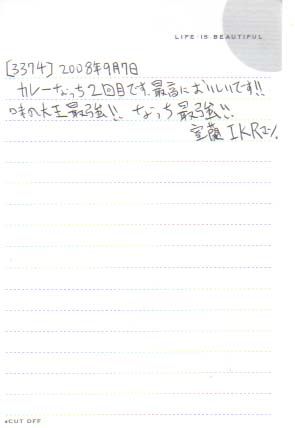 LIFE IS BEAUTIFUL
[3374] 2008年9月7日
カレーなっち2回目です。最高においしいです!!
味の大王最強!! なっち最強!!
室蘭 IKRさん
◂CUT OFF